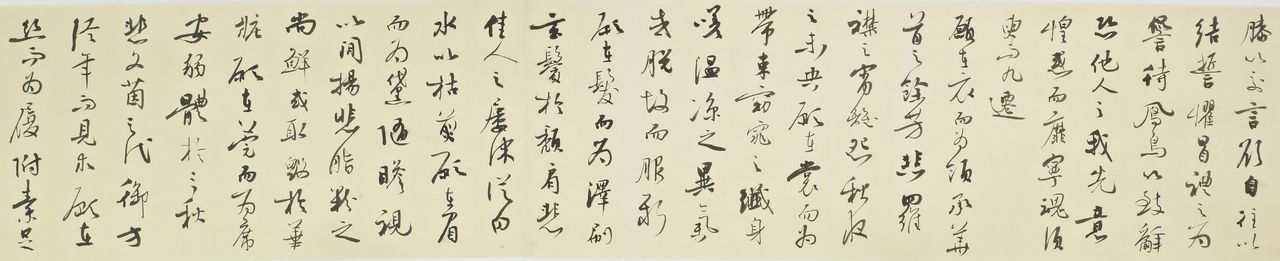 膝以交言欲自往以
結誓懼冒禮之為
諐待鳳鳥以致辭
恐他人之我先意
惶惑而靡寧魂須
臾而九遷
願在衣而為領承華
首之餘芳悲羅
襟之宵離怨秋夜
之未央願在裳而為
帶束窈窕之纖身
嗟温凉之異氣
或脱故而服新
願在髮而為澤刷
玄鬢於頹肩悲
佳人之屢沐從白
水以枯煎願在眉
而為黛隨瞻視
以間揚悲脂粉之
尚鮮或取毀於華
粧願在莞而為席
安弱體於三秋
悲文茵之代御方
經年而見求願在
絲而為履附素足